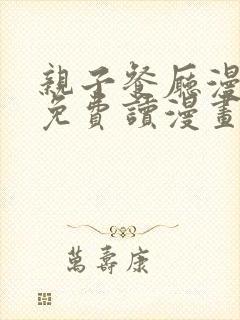 親子餐厅漫
免費讀漫畫
萬壽康